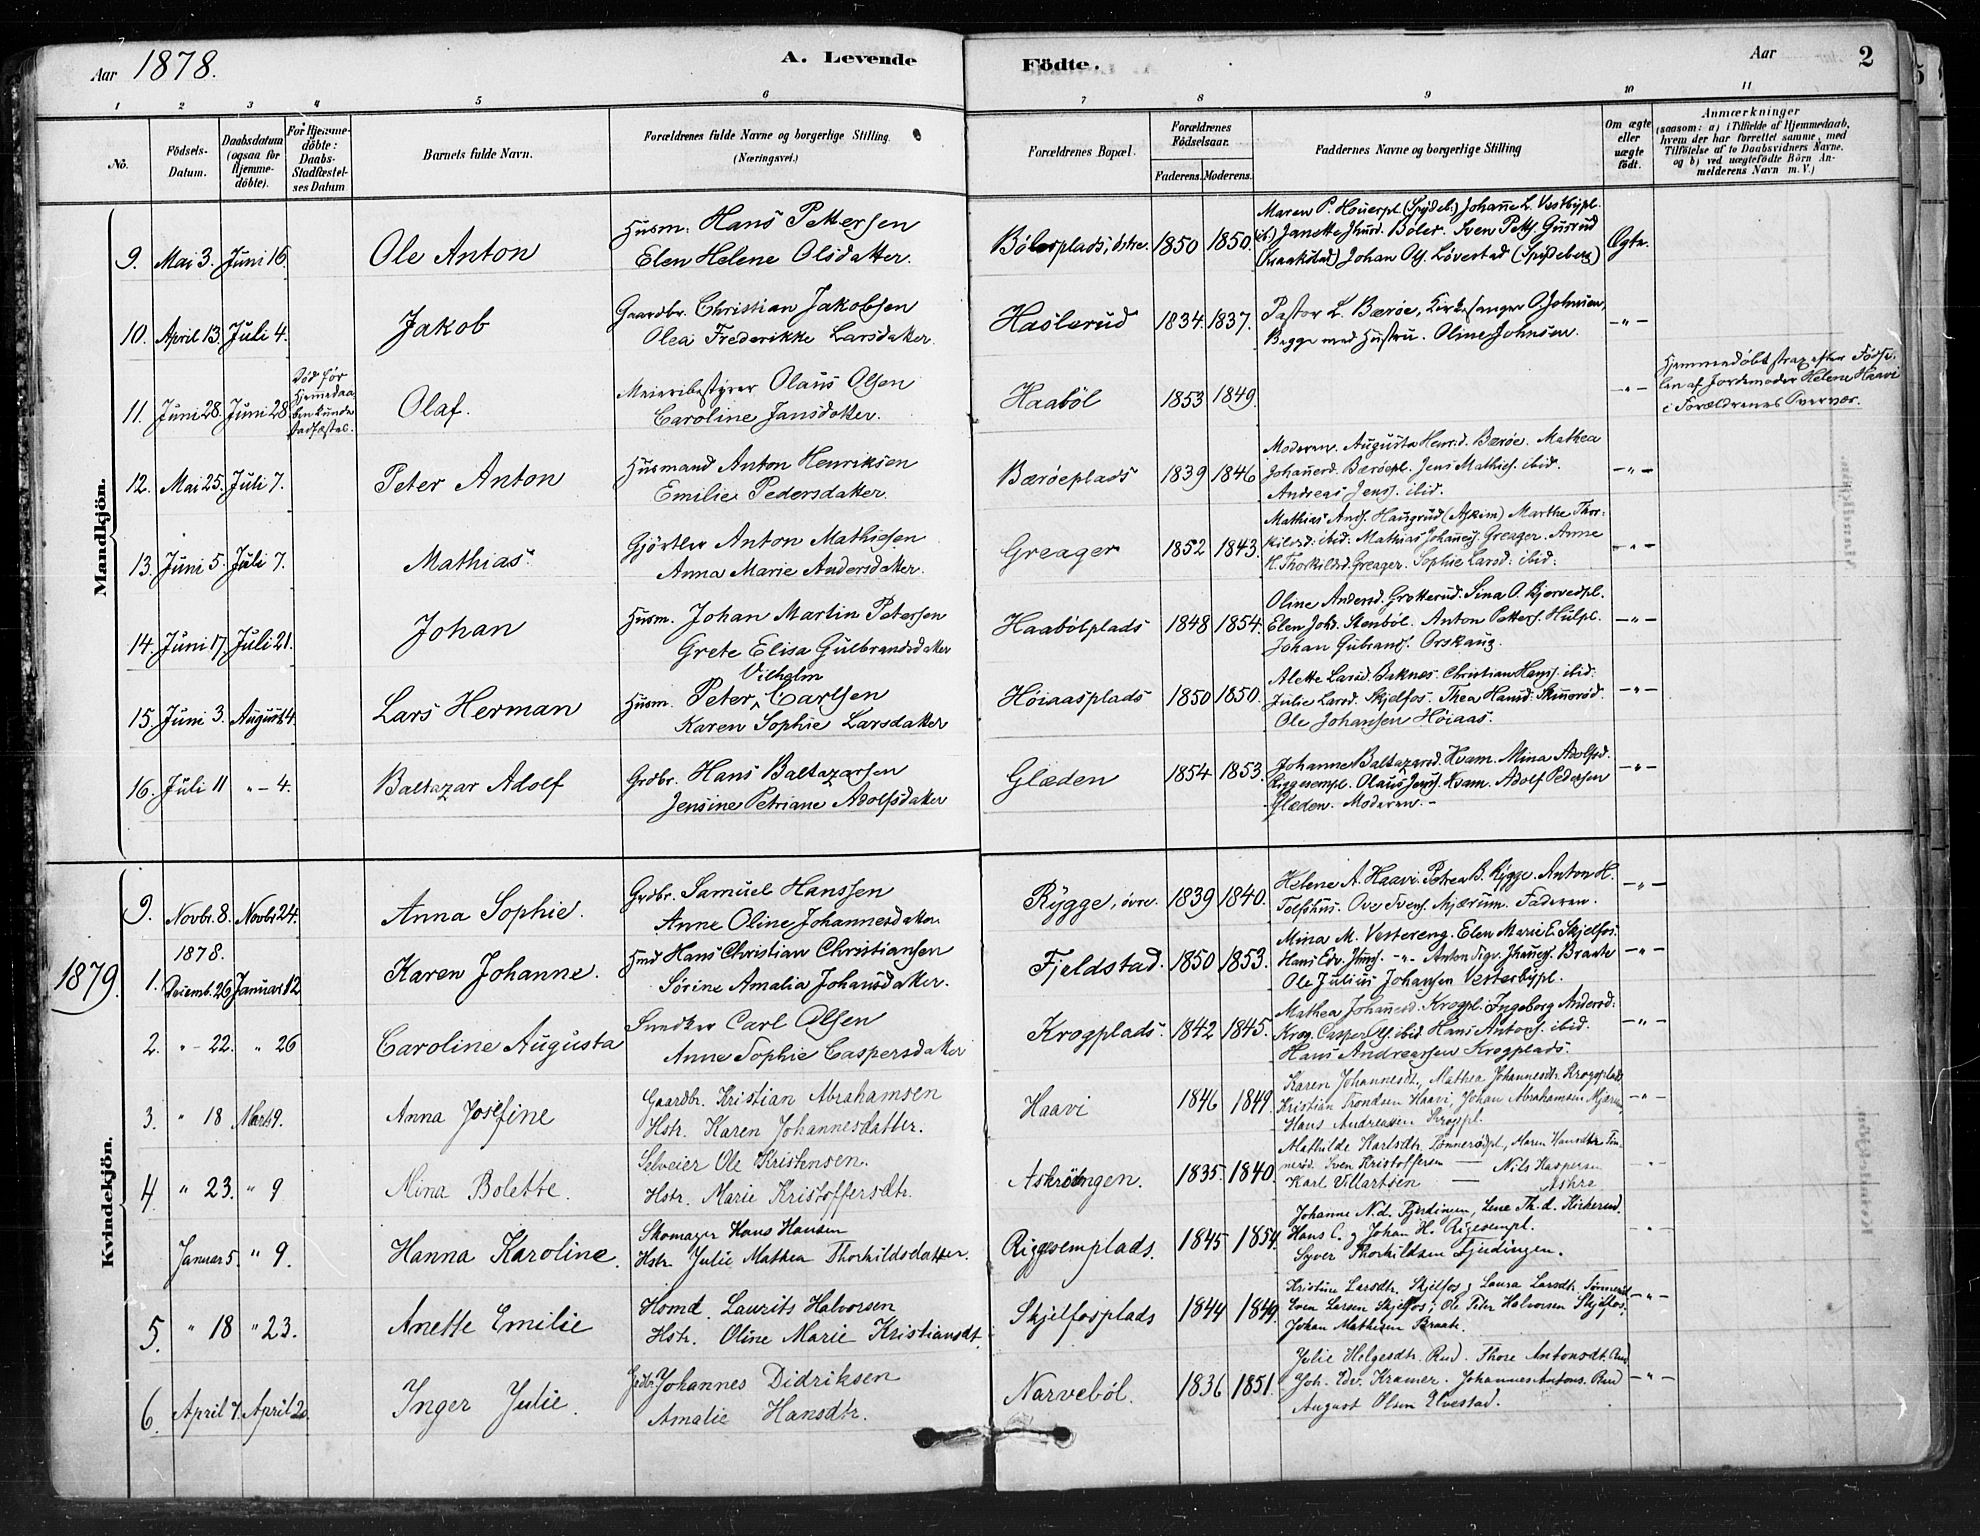 Aar 1878.
A. Levende
Födte.
Aar
2
1 2 3 4 5 6 7 8 9 10 11
No.
Födsels-
Datum.
Daabsdatum
(ogsaa for
Hjemme-
döbte).
For Hjemme-
döbte:
Daabs-
Stadfæstel-
ses Datum
Barnets fulde Navn.
Forældrenes fulde Navne og borgerlige Stilling.
(Næringsvei.)
Forældrenes Bopæl.
Forældrenes
Födselsaar.
Faderens. Moderens.
Faddernes Navne og borgerlige Stilling
Om ægte
eller
uægte
födt.
Anmærkninger
(saasom: a) i Tilfælde af Hjemmedaab,
hvem der har forrettet samme, med
Tilföielse af to Daabsvidners Navne.
og b) ved uægtefödte Börn An-
melderens Navn m. V.)
Mandkjön.
9. Mai 3. Juni 16. Ole Anton
Husm. Hans Pettersen
Elen Helene Olsdatter.
Bölerplads, östre. 1850 1850.
Maren P. Houerpl. (Spydeb.) Johanne L. Vestbypl.
(ib.) Janette Jhnsd. Böler. Sven Petts. Gusrud
(Kraakstad) Johan Ols. Lövestad (Spydeberg)
Ægte.
10. April 13. Juli 4. Jakob
Gaardbr. Christian Jakobsen
Olea Frederikke Larsdatter.
Haslerud 1834. 1837.
Pastor L. Bærøe, Kirkesanger O. Johnsen,
Begge med Hustru. Oline Johnsen.
-"-
11. Juni 28. Juni 28
Död för
Hjemmedaa-
ben kunde
stadfæstes.
Olaf.
Meieribestyrer Olaus Olsen
Caroline Jansdatter.
Haaböl 1853 1849.
-"-
Hjemmedöbt strax efter Födse-
len af Jordemoder Helene Haavi
i Forældrenes Overvær.
12. Mai 25. Juli 7. Peter Anton
Husmand Anton Henriksen
Emilie Pedersdatter.
Bærøeplads 1839 1846
Moderen. Augusta Henrd. Bærøe. Mathea
Johannesd. Bærøepl. Jens Mathies. ibid.
Andreas Jens. ibid.
-"-
13. Juni 5. Juli 7. Mathias.
Gjörtler Anton Mathisen
Anna Marie Andersdatter.
Greager 1852 1843.
Mathias Ands. Haugrud (Askim) Marthe Thor-
kildsd. ibid. Mathias Johannes. Greager. Anne
K. Thorkildsd. Greager. Sophie Larsd: ibid:
-"-
14. Juni 17. Juli 21. Johan
Husm. Johan Martin Petersen
Grete Elisa Gulbrandsdatter
Haabölplads 1848 1854.
Oline Andersd. Grötterud. Sina O. Bjervedpl.
Elen Johd. Stenböl. Anton Petters. Hülpl.
Johan Gubrans. Orskaug.
-"-
15. Juni 3. August 4. Lars Herman
Vilhelm
Husm. Peter, Carlsen
Karen Sophie Larsdatter
Höiaasplads 1850 1850.
Alette Larsd. Birknes. Christian Hans. ibid.
Julie Larsd. Skjelfos. Thea Hansd. Skinnröd.
Ole Johansen Höiaas.
-"-
16. Juli 11 "-4. Baltazar Adolf
Grdbr. Hans Baltazarsen
Jensine Petriane Adolfsdatter
Glæden 1854 1853.
Johanne Baltazarsd. Kvam. Mina Adolfsd.
Riggesempl. Olaus Jens. Kvam. Adolf Pedersen
Glæden. Moderen.-
-"-
Kvindekjön.
9. Novbr. 8. Novbr. 24. Anna Sophie.
Grdbr. Samuel Hanssen
Anne Oline Johannesdatter
Rygge, övre. 1839 1840.
Helene A. Haavi. Petrea B. Rygge. Anton H.
Tolfshus. Ove Svens. Mjærum. Faderen.
-"-
1879.
1878.
1. Decemb. 26 Januar 12 Karen Johanne.
Hmd Hans Christian Christiansen
Sörine Amalia Johansdatter.
Fjeldstad. 1850 1853.
Mina M. Vestereng. Elen Marie E. Skjelfos.
Hans Edv. Jhns. -"- Anton Sigv. Jhannes. Braate
Ole Julius Johansen Vesterbypl.
-"-
2. "-22. " 26 Caroline Augusta
Snedker Carl Olsen
Anne Sophie Caspersdatter
Krogplads 1842 1845.
Mathea Johannesd. Krogpl. Ingeborg Andersd:
Krog. Casper Ols. ibid Hans Antons. ibid.
Hans Andreassen Krogplads.
-"-
3. " 18 Marts 9. Anna Josefine
Gaardbr. Kristian Abrahamsen
Hstr. Karen Johannesdatter.
Haavi 1846 1849.
Karen Johannesdt., Mathea Johannesdtr. Krogsplads
Kristian Trondsen Haavi, Johan Abrahamsen Mjærum
Hans Andreasen Krogpl.
-"-
4 " 23. " 9 Mina Bolette.
Selveier Ole Kristensen.
Hstr. Marie Kristoffersdtr.
Askröengen. 1835. 1840.
Mathilde Karlsdtr. Tønnerödpl, Maren Hansdtr Tön-
neröd. Sven Kristoffersen — Nils Kaspersen
Karl Villartsen — Askrø
-"-
Januar 5. " 9. Hanna Karoline.
Skomager Hans Hansen
Hstr. Julie Mathea Thorkildsdatter.
Riggesemplads. 1845 1854.
Johanne N.d. Fjerdingen, Lene Th. d. Kirkerud.
Hans C. og Johan H. Rigesempl.
Syver Thorkildsen Fjerdingen.
-"-
5. " 18 " 23. Anette Emilie
Husmd. Laurits Halvorsen
Hstr. Oline Marie Kristiansdt.
Skjelfosplads 1844 1849.
Kristine Larsdtr. Skjelfos, Laura Larsdtr. Tønneröd
Sven Larsen Skjelfos; Ole Peter Halvorsen Skjelfos.
Johan Mathisen Braate.
-"-
6. April 7. April 20. Inger Julie.
Grdbr. Johannes Didriksen
Amalie Hansdtr.
Narveböl. 1836 1851.
Julie Helgesdtr. Rud. Thore Antonsdt. Rud
Joh. Edv. Kramer. Johannes Antons. Rud
August Olsen Elvestad.
-"-